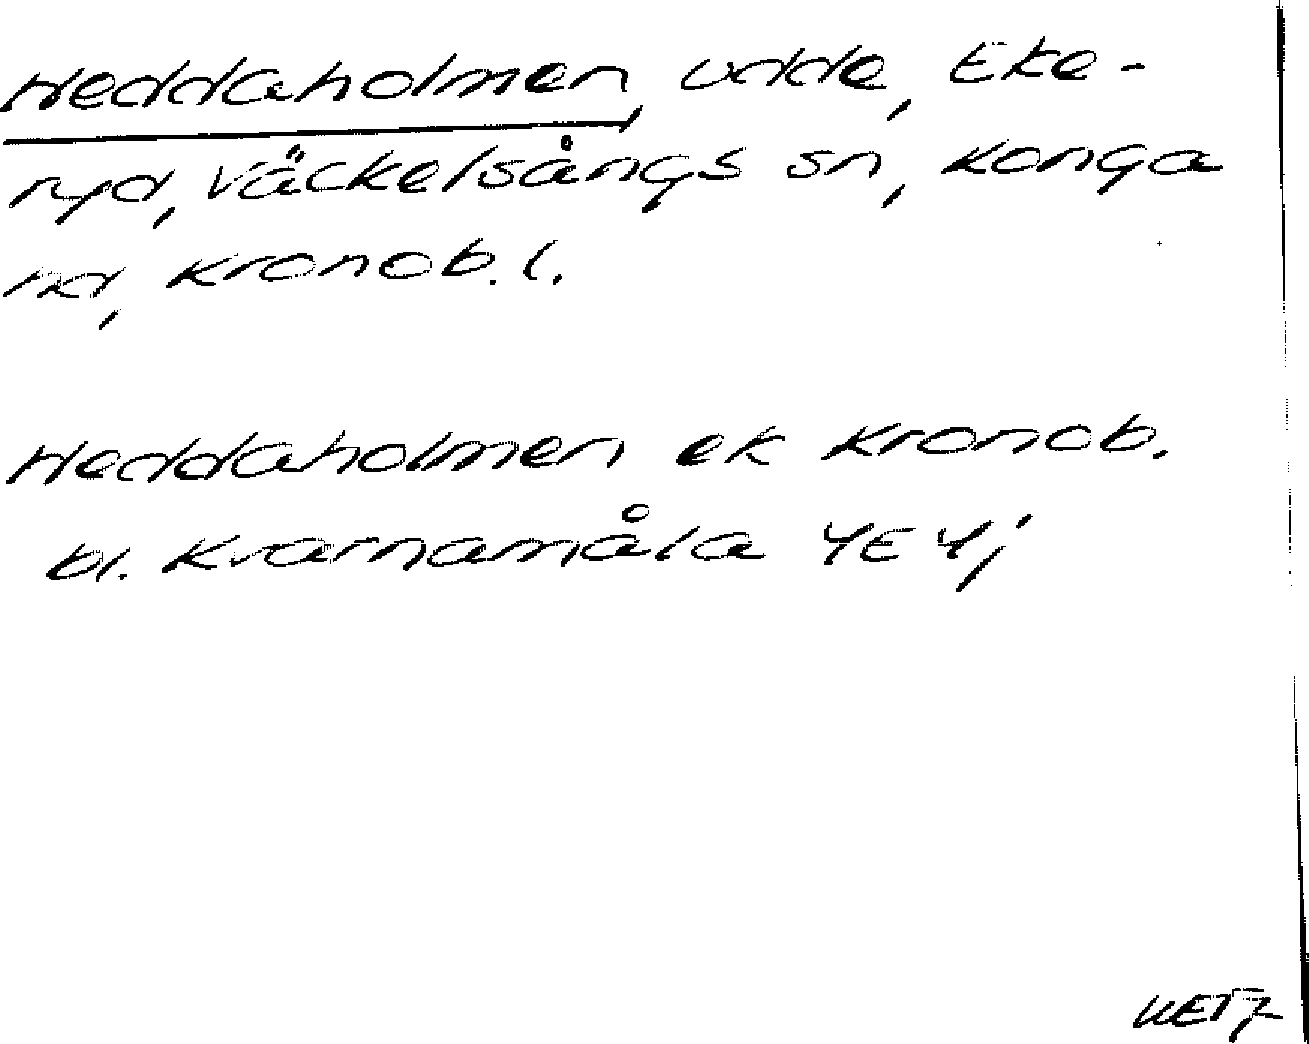 Heddaholmen, udde, Eke-
ryd, Väckelsångs sn, Konga
hd, Kronob. l.
Heddaholmen ek Kronob.
bl. Kvarnamåla 4E 4j